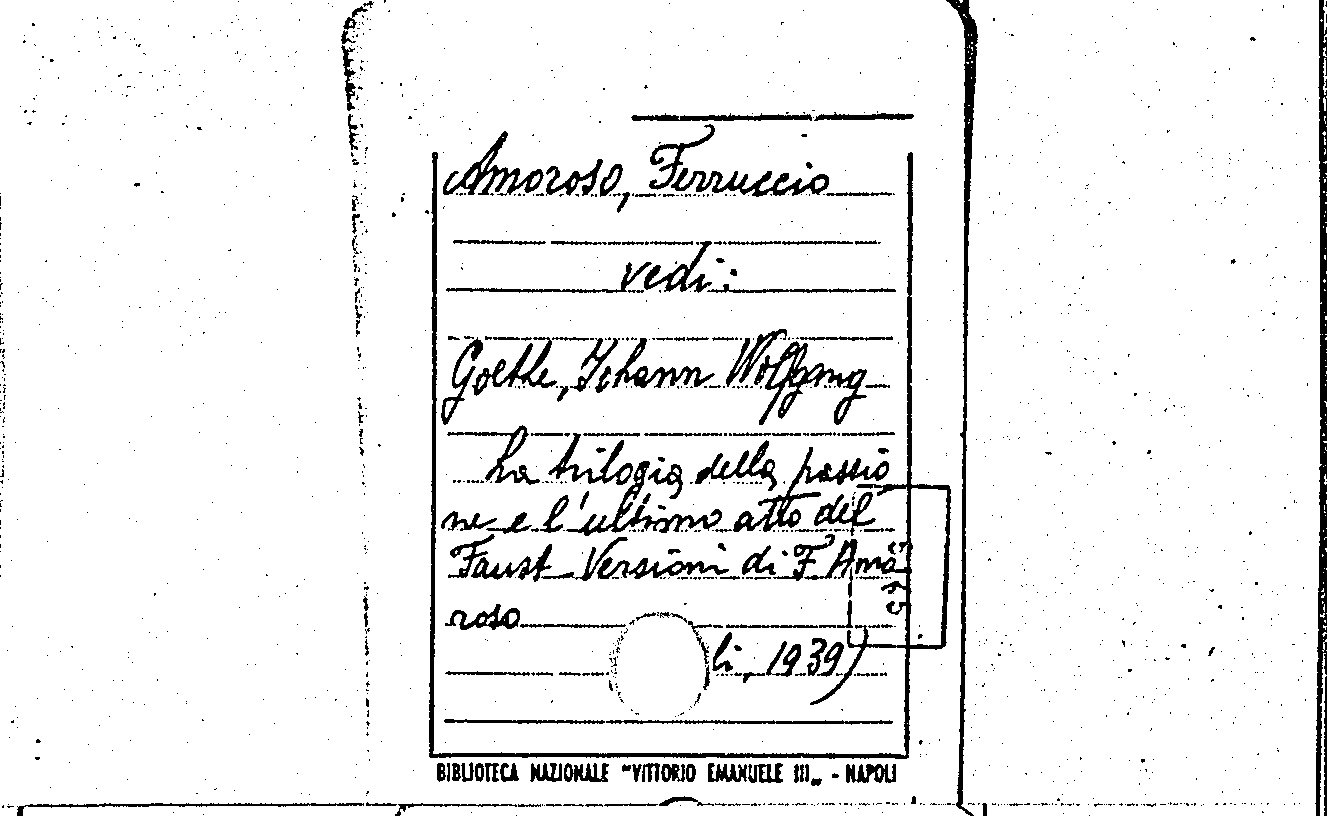 Amoroso, Ferruccio
vedi:
Goethe, Johann Wolfgang
La trilogia della passio
ne e l'ultimo atto del
Faust Versioni di F Amo
roso
li, 1939)
BIBLIOTECA NAZIONALE "VITTORIO EMANUELE III„ - NAPOLI